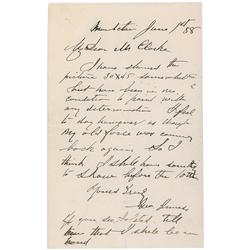 June 1st 88
My Dear Mr Clarke
I have started the
picture 30x45 somewhat
but have been in no
condition to paint with
any determination I feel
to day however as though
my old force was coming
back again. So I
think I shall have something
to show before the
Yours Truly
Geo Inness
If you see tell
him that I shall be on
hand